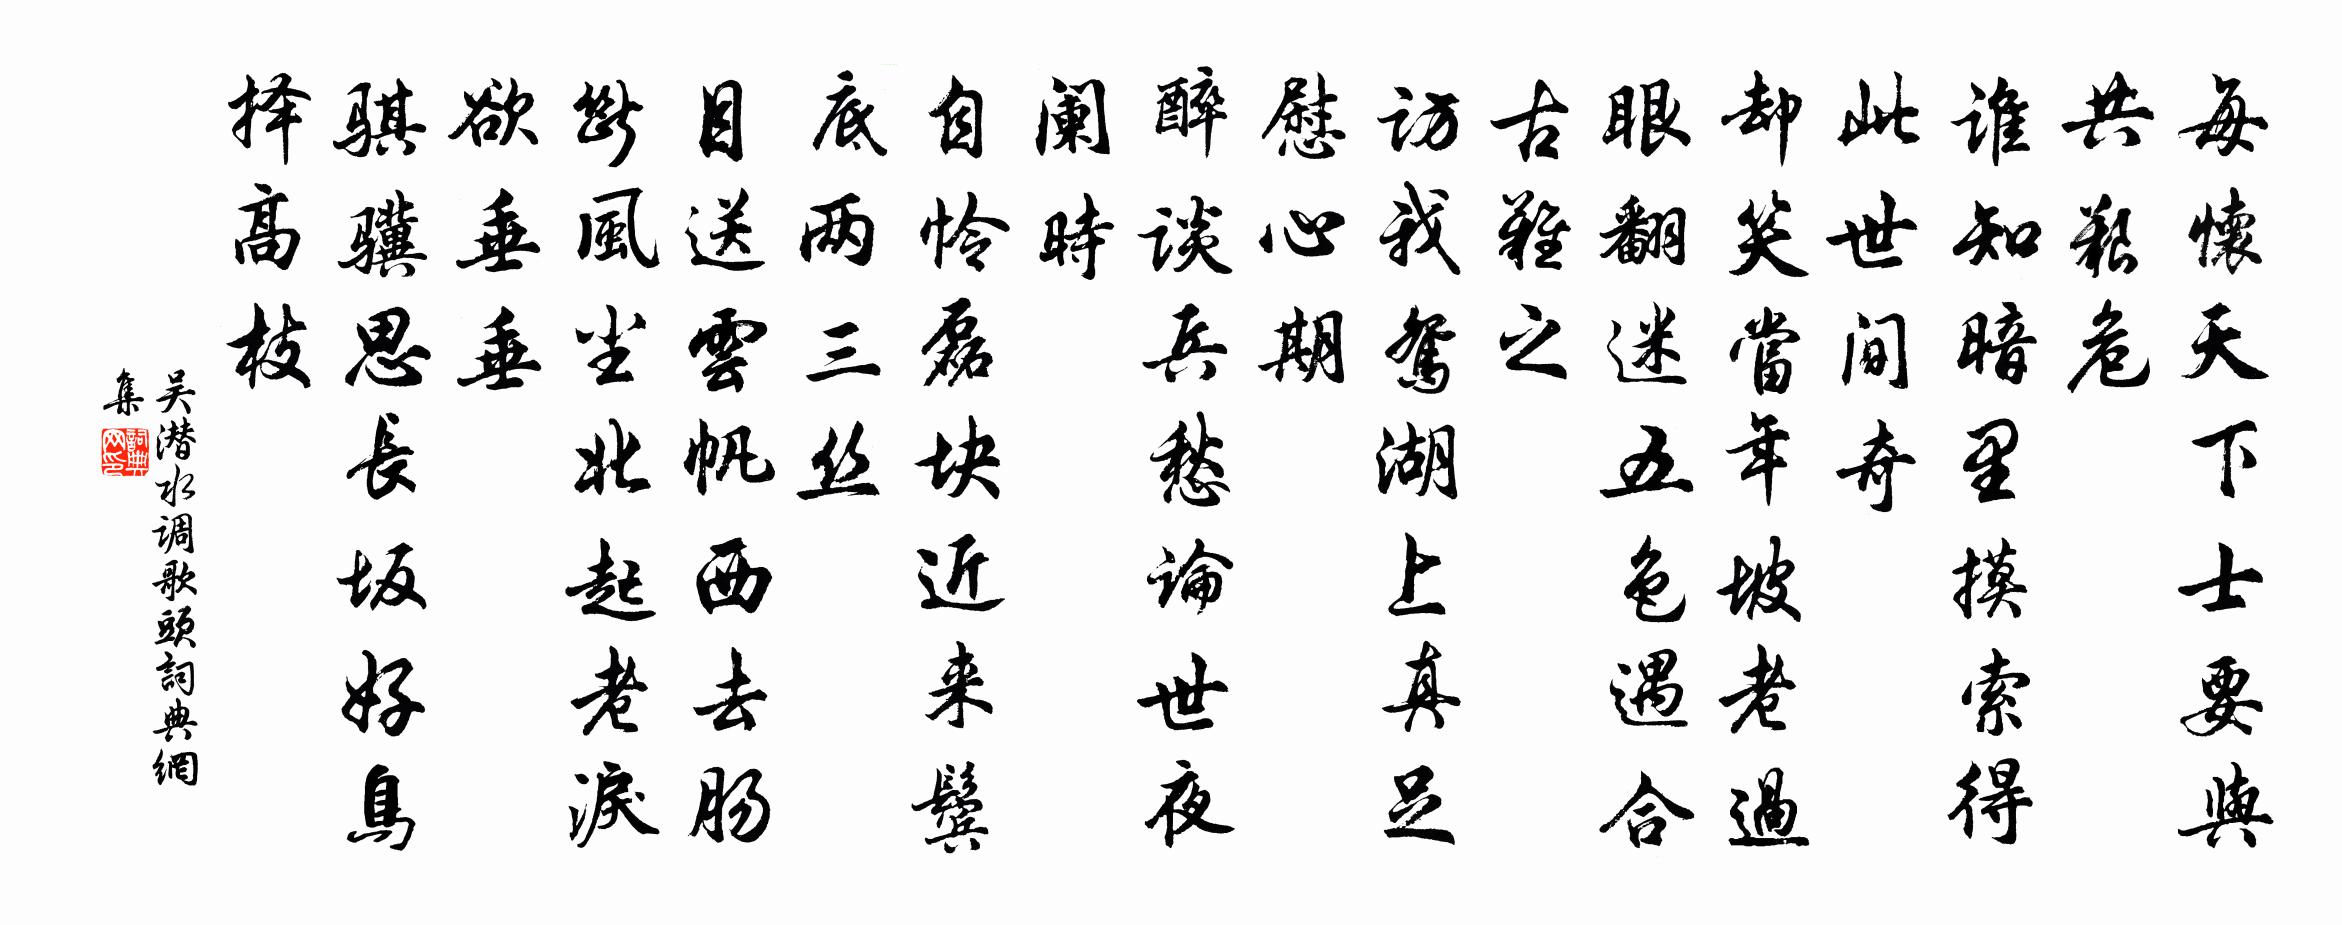 每懷天下士要與
共艱危
誰知暗里摸索得
此世间奇
却笑當年坡老過
眼翻迷五色遇合
古難之
访我鴛湖上真足
慰心期
醉谈兵愁論世夜
阑時
自怜磊块近来鬓
底两三丝
目送雲帆西去肠
斷風尘北起老淚
欲垂垂
骐骥思長坂好鳥
择高枝
吴潜水调歌頭詞典網
集
詞典
网印